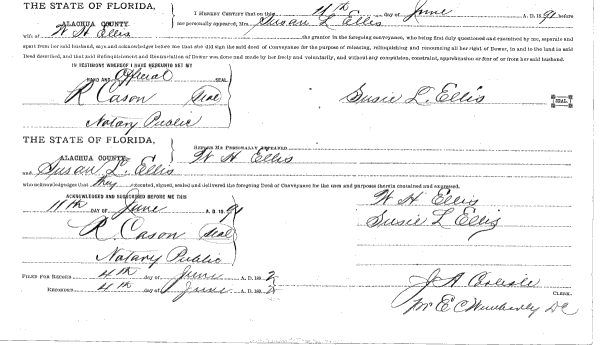 THE STATE OF FLORIDA,
ALACHUA COUNTY.
I HEREBY CERTIFY that on this 11th day of June A. D. 1891 before
me personally appeared, Mrs. Susan L Ellis
wife of W H Ellis the grantor in the foregoing conveyance, who being first duly questioned and examined by me, separate and
apart from her said husband, says and acknowledges before me that she did sign the said deed of Conveyance for the purpose of releasing, relinquishing and renouncing all her right of Dower, in and to the land in said
Deed described, and that said Relinquishment and Renunciation of Dower was done and made by her freely and voluntarily, and without any compulsion, constraint, apprehension or fear of or from her said husband.
IN TESTIMONY WHEREOF I HAVE HEREUNTO SET MY
HAND AND Official SEAL
R Cason Seal Susie L. Ellis SEAL.
Notary Public
THE STATE OF FLORIDA,
ALACHUA COUNTY.
BEFORE ME PERSONALLY APPEARED W H Ellis
and Susan L. Ellis
who acknowledges that they executed, signed, sealed and delivered the foregoing Deed of Conveyance for the uses and purposes therein contained and expressed.
ACKNOWLEDGED AND SUBSCRIBED BEFORE ME THIS W H Ellis
11th DAY OF June A. D. 1891 Susie L Ellis
R. Cason Seal
Notary Public
FILED FOR RECORD 4th day of June A. D. 1892
RECORDED 4th day of June A. D. 1892
J A Carlisle CLERK.
Pr E C Wimberly DC